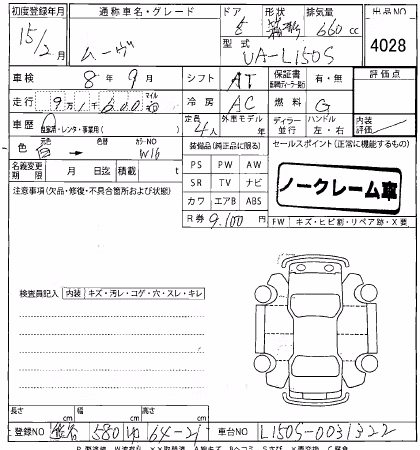 初度登録年月 通称車名・グレード ドア 形状 排気量 出品NO
15/2月 ムーヴ 5 660 cc 4028
型式 UA-L150S
車検 8年 9月 シフト AT 保証書 有・無 評価点
走行 9万1千600 マイル 冷房 AC 燃料 G
車歴 自家用・レンタ・事業用( ) 定員 4人 外車モデル 年 ディーラー 並行 ハンドル 左・右 内装評価
色 白 → 色替 カラーNO W16 装備品(純正品に限る) セールスポイント(正常に機能するもの)
名義変更期限 月 日迄 積載 t PS PW AW
注意事項(欠品・修復・不具合箇所および状態) SR TV ナビ ノークレーム車
カワ エアB ABS
R券 9,100円 FW キズ・ヒビ割・リペア跡・X要
検査員記入 内装 キズ・汚レ・コゲ・穴・スレ・キレ
長さ cm 幅 cm 高さ cm
登録NO 熊谷 580 64-21 車台NO L150S-0031322